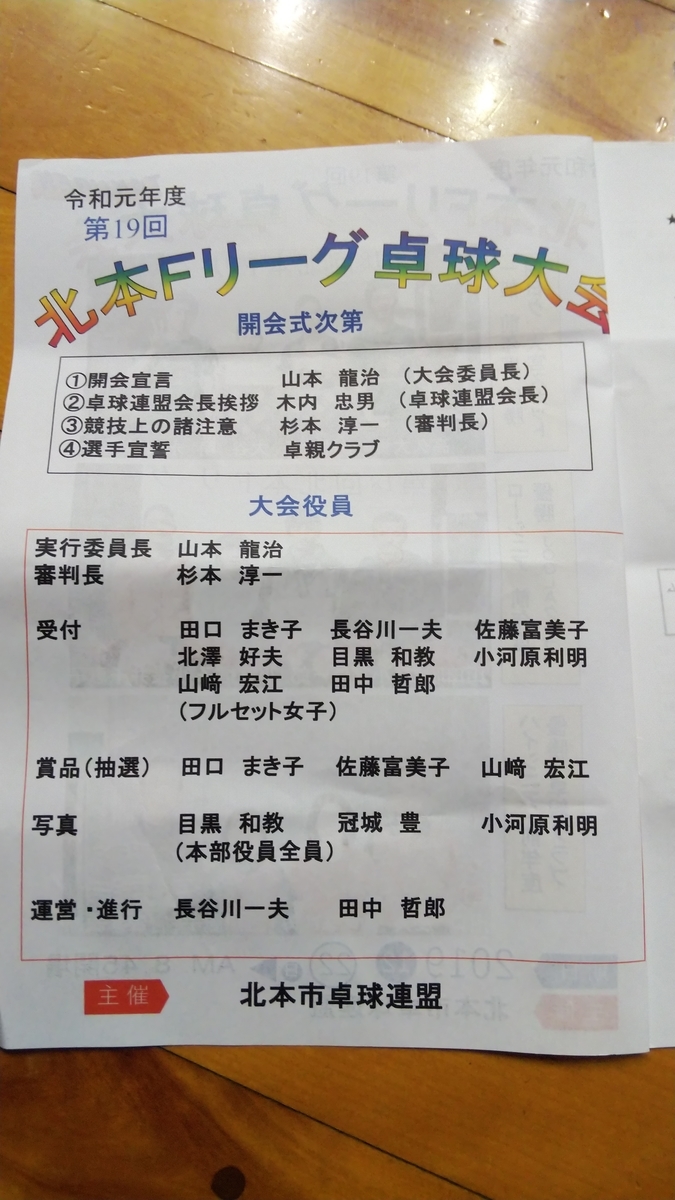 令和元年度
第19回
北本Fリーグ卓球大会
開会式次第
①開会宣言 山本 龍治 (大会委員長)
②卓球連盟会長挨拶 木内 忠男 (卓球連盟会長)
③競技上の諸注意 杉本 淳一 (審判長)
④選手宣誓 卓親クラブ
大会役員
実行委員長 山本 龍治
審判長 杉本 淳一
受付 田口 まき子 長谷川一夫 佐藤富美子
北澤 好夫 目黒 和教 小河原利明
山﨑 宏江 田中 哲郎
(フルセット女子)
賞品(抽選) 田口 まき子 佐藤富美子 山﨑 宏江
写真 目黒 和教 冠城 豊 小河原利明
(本部役員全員)
運営・進行 長谷川一夫 田中 哲郎
主催 北本市卓球連盟